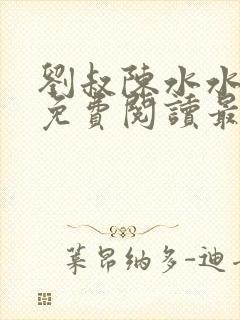 劉叔陳水水
免費閱讀最
萊昂納多-迪